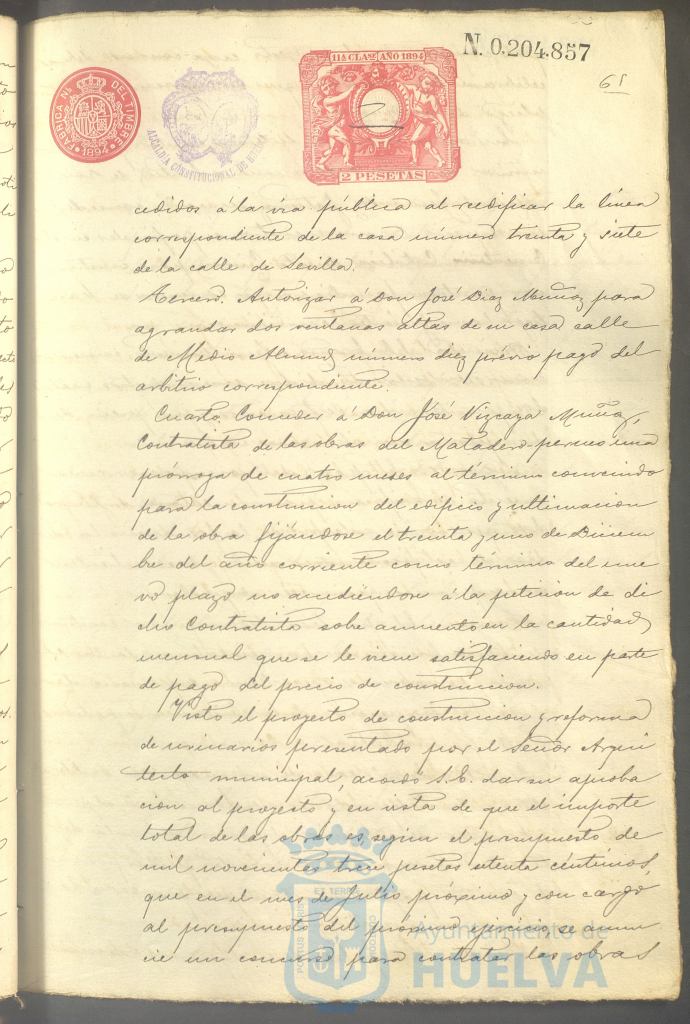 N. 0.204.857
11ª CLASE AÑO 1894
FÁBRICA NL DEL TIMBRE
1894
ALCALDIA CONSTITUCIONAL DE HUELVA
2 PESETAS
cedidos á la via pública al reedificar la linea
correspondiente de la casa número treinta y siete
de la calle de Sevilla.
Tercero. Autorizar á Don José Diaz Muñoz para
agrandar dos ventanas altas de su casa calle
de Médio Almud número diez prévio pago del
arbitrio correspondiente.
Cuarto. Conceder á Don José Vizcaya Muñoz,
Contratista de las obras del Matadero una
prórroga de cuatro meses al término convenido
para la construccion del edificio y ultimacion
de la obra fijándose el treinta y uno de Diciem
bre del año corriente como término del nue
vo plazo no accediéndose á la peticion de di
cho Contratista sobre aumento en la cantidad
mensual que se le viene satisfaciendo en parte
de pago del precio de construccion.
Visto el proyecto de construccion y reforma
de urinarios presentado por el Señor Arqui
tecto municipal, acordó S. E. dar su aproba
cion al proyecto y en vista de que el importe
total de las obras es, segun el presupuesto de
mil novecientas tres pesetas setenta céntimos,
que en el mes de Julio próximo y con cargo
al presupuesto del próximo ejercicio, se anun
cie un concurso para contratar las obras
Ayuntamiento de
HUELVA